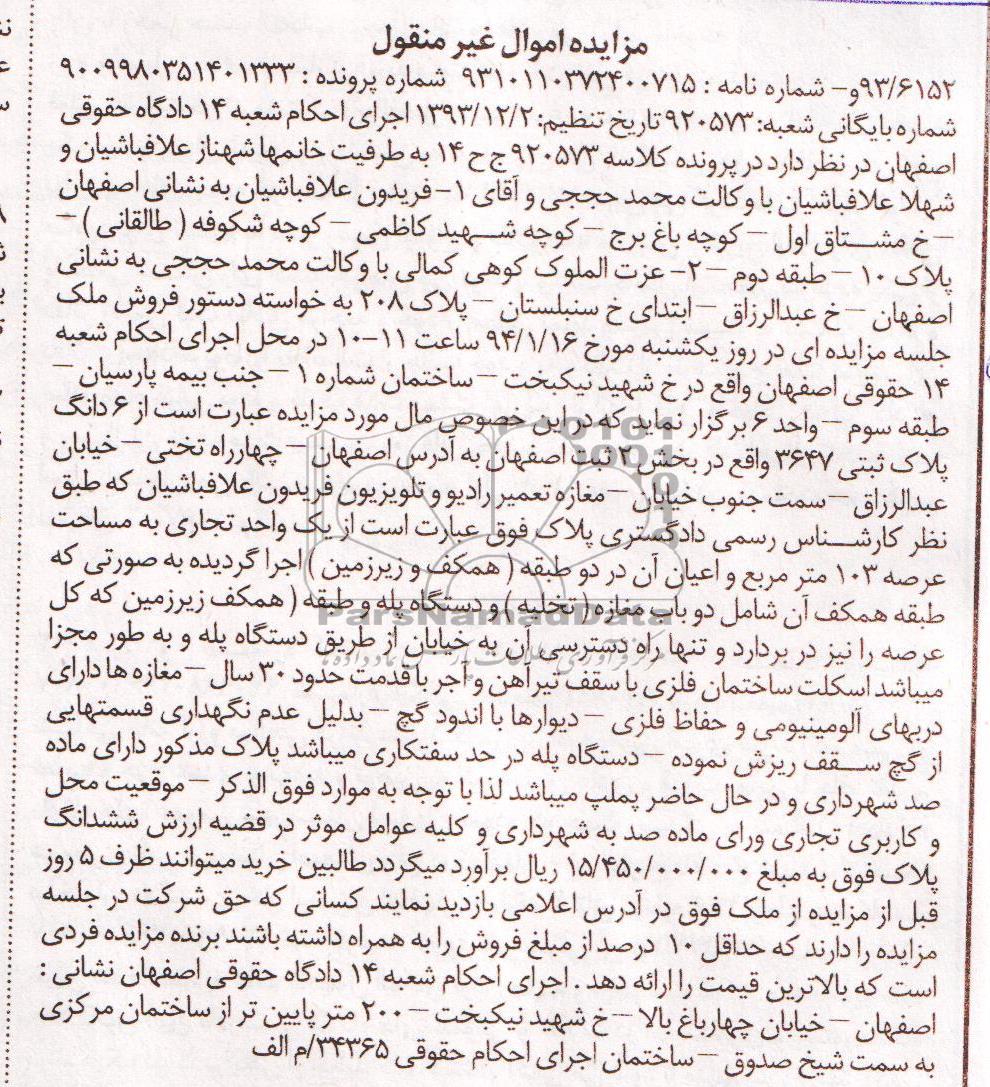 مزایده اموال غیر منقول
۹۳/۶۱۵۲و- شماره نامه : ۹۳۱۰۱۱۰۳۷۲۴۰۰۷۱۵ شماره پرونده : ۹۰۰۹۹۸۰۳۵۱۴۰۱۳۳۳
شماره بایگانی شعبه: ۹۲۰۵۷۳ تاریخ تنظیم: ۱۳۹۳/۱۲/۲ اجرای احکام شعبه ۱۴ دادگاه حقوقی
اصفهان در نظر دارد در پرونده کلاسه ۹۲۰۵۷۳ ج ح ۱۴ به طرفیت خانمها شهناز علافباشیان و
شهلا علافباشیان با وکالت محمد حججی و آقای ۱- فریدون علافباشیان به نشانی اصفهان
– خ مشتاق اول – کوچه باغ برج – کوچه شهید کاظمی – کوچه شکوفه ( طالقانی ) –
پلاک ۱۰ – طبقه دوم – ۲- عزت الملوک کوهی کمالی با وکالت محمد حججی به نشانی
اصفهان – خ عبدالرزاق – ابتدای خ سنبلستان – پلاک ۲۰۸ به خواسته دستور فروش ملک
جلسه مزایده ای در روز یکشنبه مورخ ۹۴/۱/۱۶ ساعت ۱۱-۱۰ در محل اجرای احکام شعبه
۱۴ حقوقی اصفهان واقع در خ شهید نیکبخت – ساختمان شماره ۱ – جنب بیمه پارسیان –
طبقه سوم – واحد ۶ برگزار نماید که در این خصوص مال مورد مزایده عبارت است از ۶ دانگ
پلاک ثبتی ۳۶۴۷ واقع در بخش ۲ ثبت اصفهان به آدرس اصفهان – چهارراه تختی – خیابان
عبدالرزاق – سمت جنوب خیابان – مغازه تعمیر رادیو و تلویزیون فریدون علافباشیان که طبق
نظر کارشناس رسمی دادگستری پلاک فوق عبارت است از یک واحد تجاری به مساحت
عرصه ۱۰۳ متر مربع و اعیان آن در دو طبقه ( همکف و زیرزمین ) اجرا گردیده به صورتی که
طبقه همکف آن شامل دو باب مغازه ( تخلیه ) و دستگاه پله و طبقه ( همکف زیرزمین که کل
عرصه را نیز در بردارد و تنها راه دسترسی آن به خیابان از طریق دستگاه پله و به طور مجزا
میباشد اسکلت ساختمان فلزی با سقف تیرآهن و آجر با قدمت حدود ۳۰ سال – مغازه ها دارای
دربهای آلومینیومی و حفاظ فلزی – دیوارها با اندود گچ – بدلیل عدم نگهداری قسمتهایی
از گچ سقف ریزش نموده – دستگاه پله در حد سفتکاری میباشد پلاک مذکور دارای ماده
صد شهرداری و در حال حاضر پملپ میباشد لذا با توجه به موارد فوق الذکر – موقعیت محل
و کاربری تجاری ورای ماده صد به شهرداری و کلیه عوامل موثر در قضیه ارزش ششدانگ
پلاک فوق به مبلغ ۱۵/۴۵۰/۰۰۰/۰۰۰ ریال برآورد میگردد طالبین خرید میتوانند ظرف ۵ روز
قبل از مزایده از ملک فوق در آدرس اعلامی بازدید نمایند کسانی که حق شرکت در جلسه
مزایده را دارند که حداقل ۱۰ درصد از مبلغ فروش را به همراه داشته باشند برنده مزایده فردی
است که بالاترین قیمت را ارائه دهد . اجرای احکام شعبه ۱۴ دادگاه حقوقی اصفهان نشانی :
اصفهان – خیابان چهارباغ بالا – خ شهید نیکبخت – ۲۰۰ متر پایین تر از ساختمان مرکزی
به سمت شیخ صدوق – ساختمان اجرای احکام حقوقی ۳۴۳۶۵/م الف
ParsNamadData